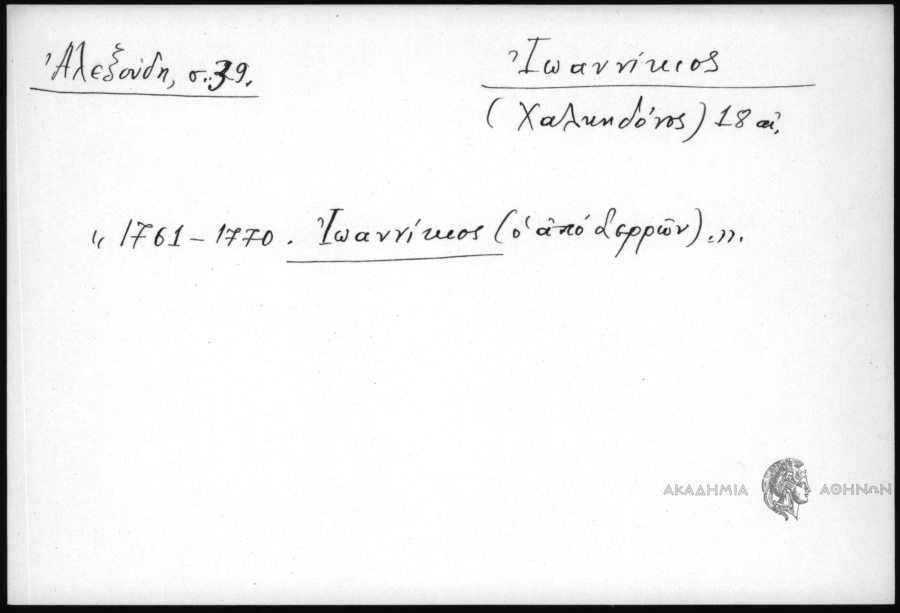 Ἀλεξούδη, σ. 39.
Ἰωαννίκιος
(Χαλκηδόνος) 18 αἰ.
« 1761 – 1770. Ἰωαννίκιος (ὁ ἀπό Σερρῶν).».
ΑΚΑΔΗΜΙΑ ΑΘΗΝΩΝ